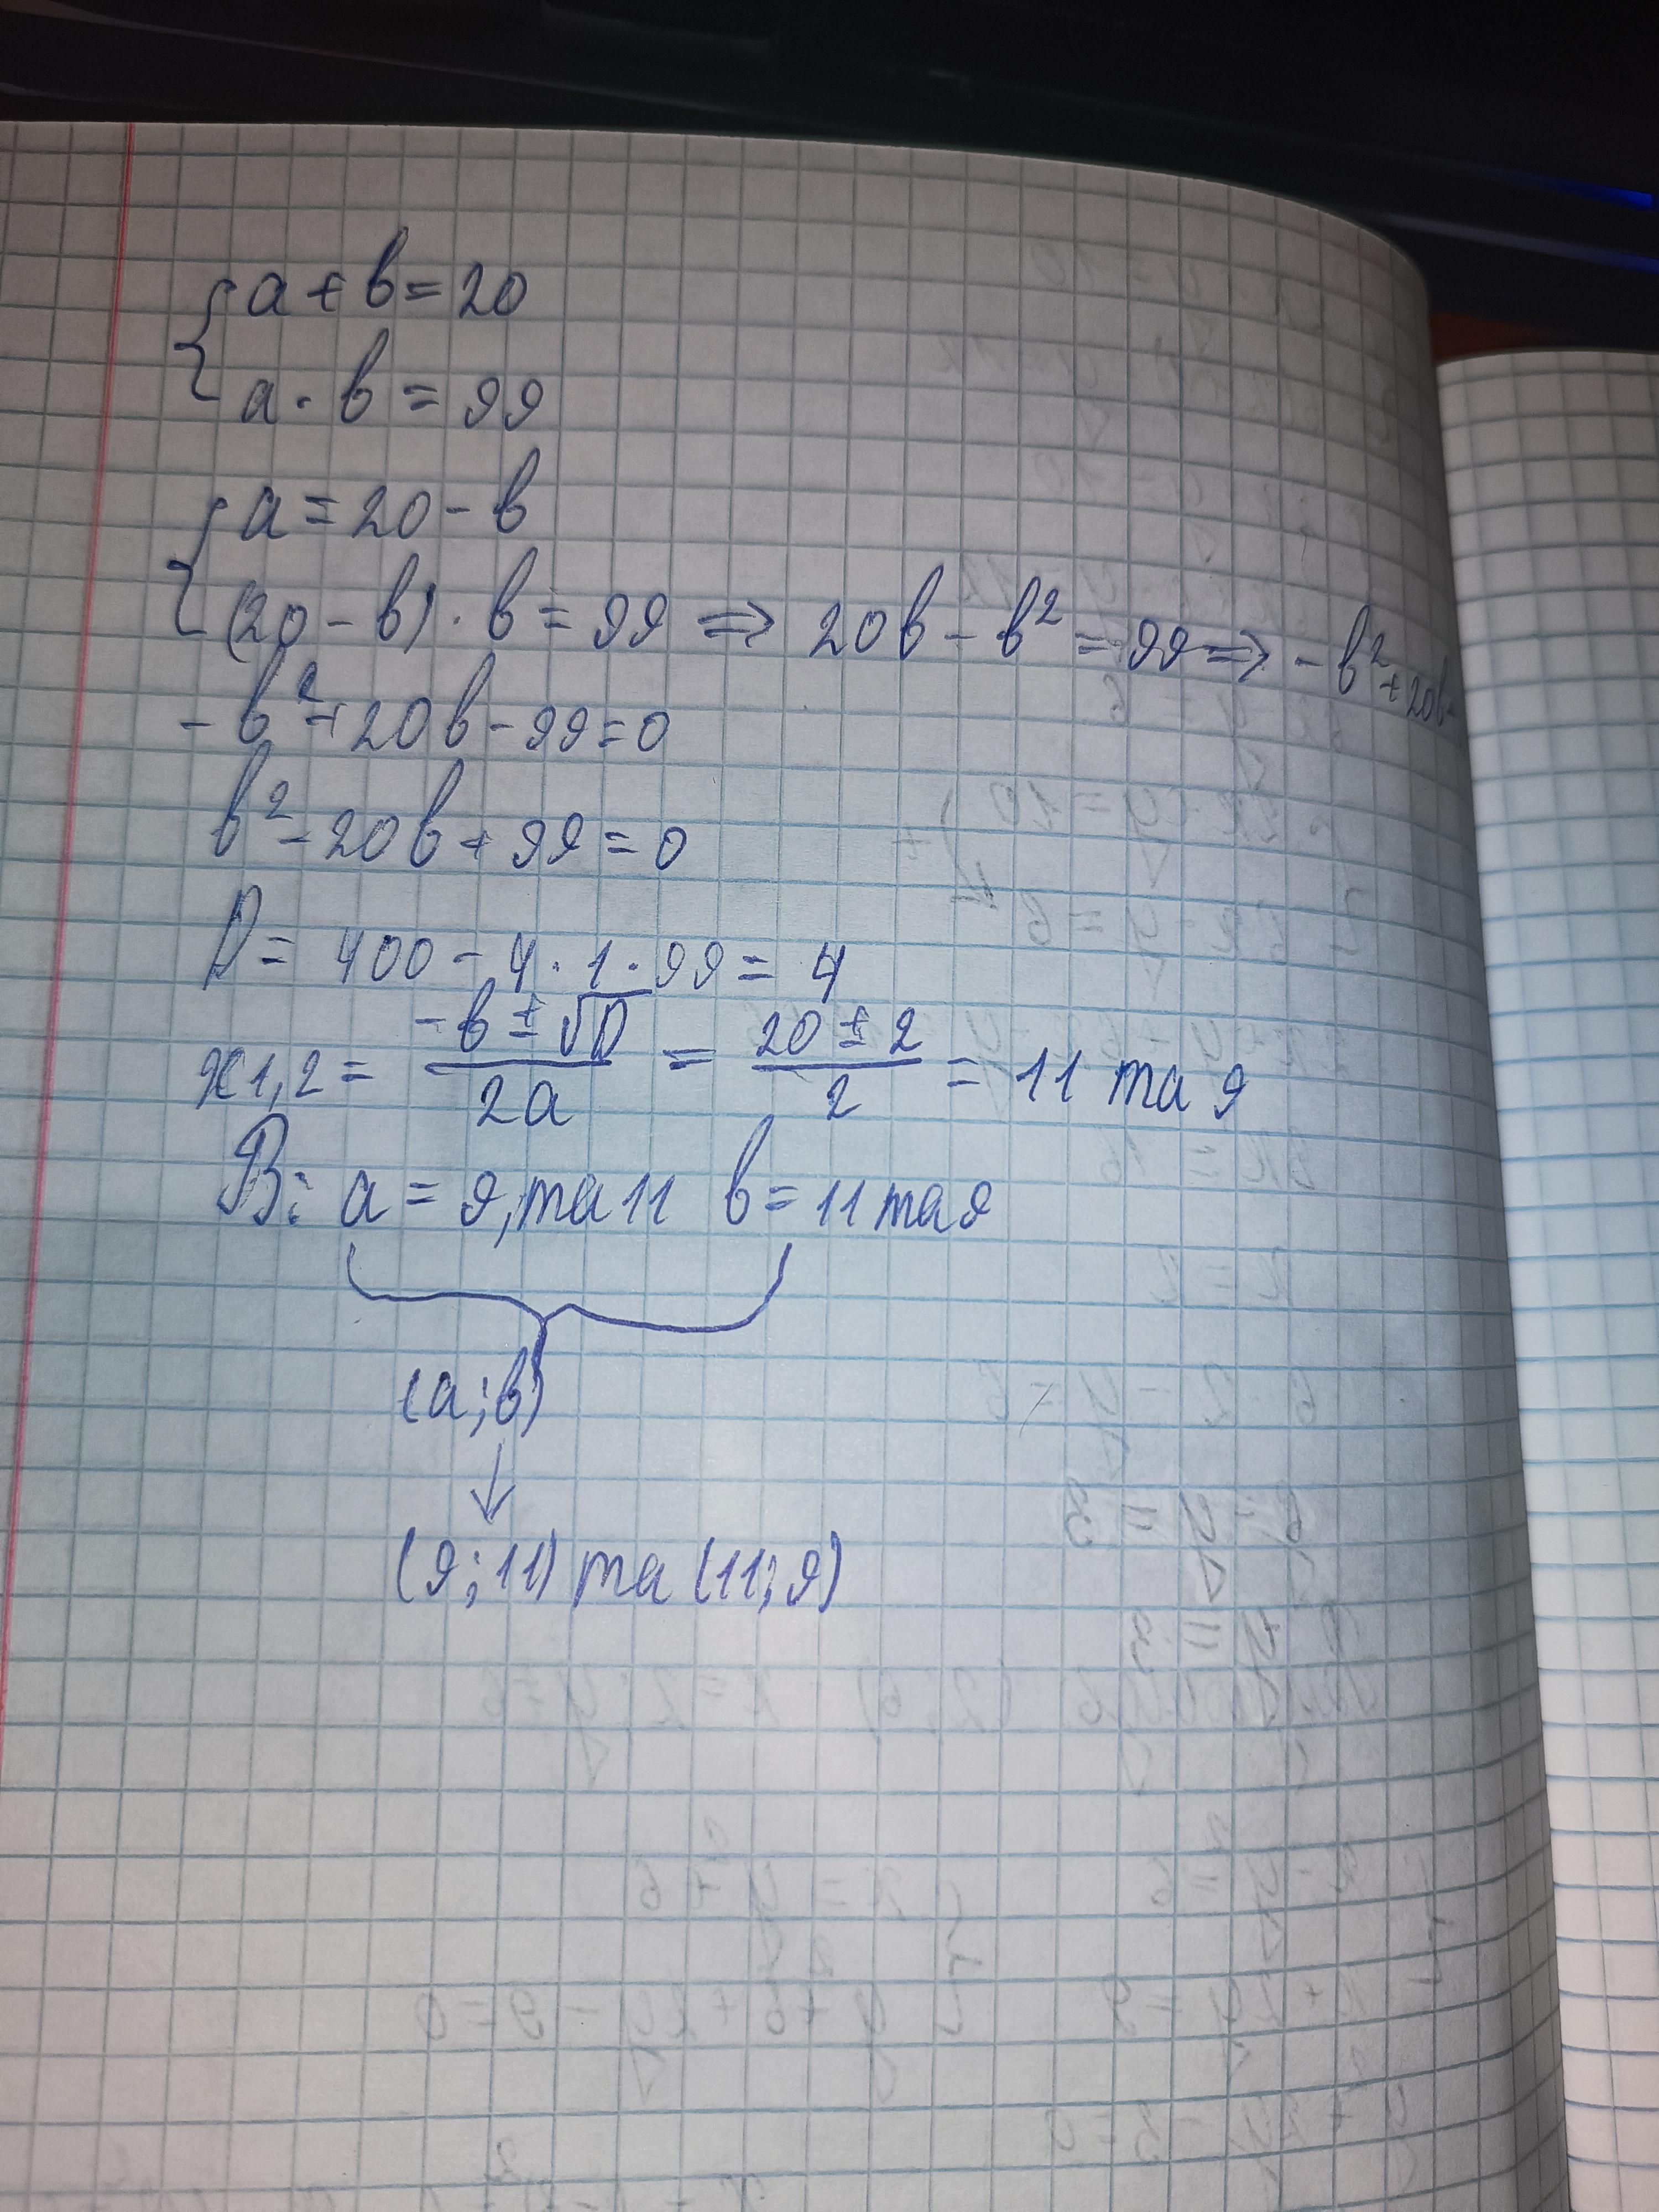 { a + b = 20
a · b = 99
{ a = 20 - b
(20 - b) · b = 99 => 20b - b² = 99 => -b² + 20b -
-b² + 20b - 99 = 0
b² - 20b + 99 = 0
D = 400 - 4 · 1 · 99 = 4
x1,2 = (-b ± √D)/(2a) = (20 ± 2)/2 = 11 та 9
В: a = 9, та 11 b = 11 та 9
(a; b)
(9; 11) та (11; 9)